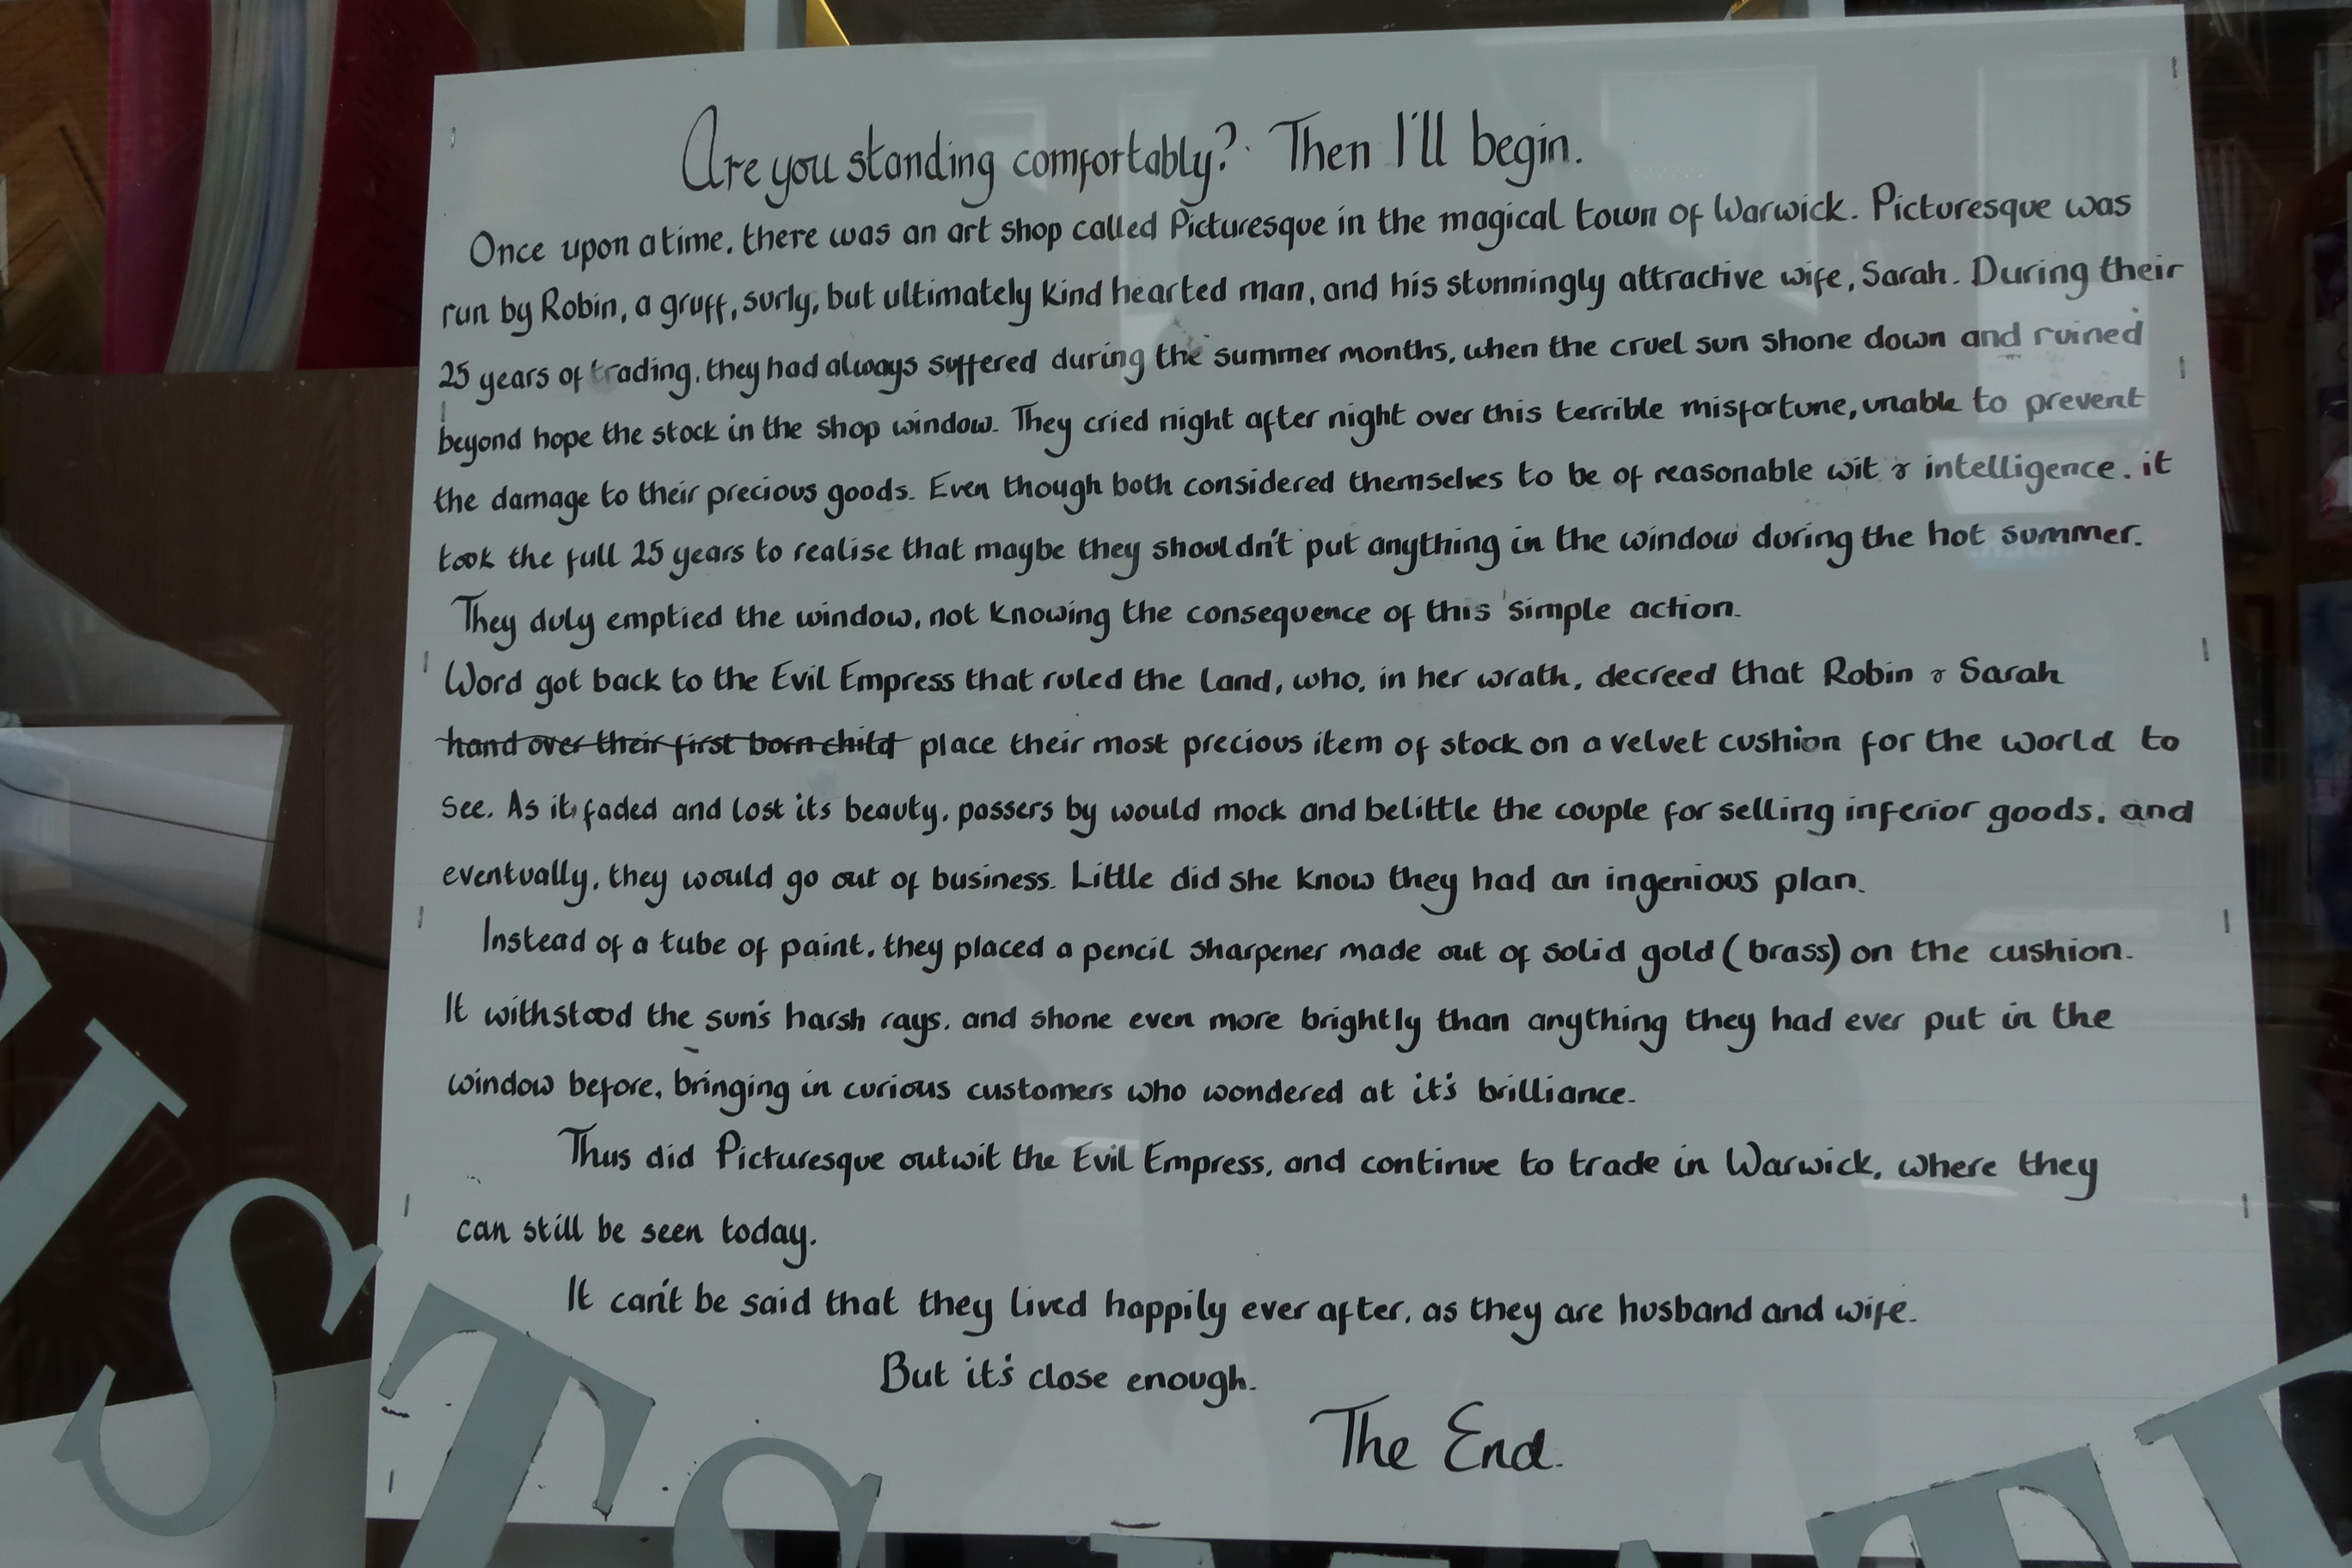 Are you standing comfortably? Then I'll begin.
Once upon a time, there was an art shop called Picturesque in the magical town of Warwick. Picturesque was
run by Robin, a gruff, surly, but ultimately kind hearted man, and his stunningly attractive wife, Sarah. During their
25 years of trading, they had always suffered during the summer months, when the cruel sun shone down and ruined
beyond hope the stock in the shop window. They cried night after night over this terrible misfortune, unable to prevent
the damage to their precious goods. Even though both considered themselves to be of reasonable wit & intelligence, it
took the full 25 years to realise that maybe they shouldn't put anything in the window during the hot summer.
They duly emptied the window, not knowing the consequence of this simple action.
Word got back to the Evil Empress that ruled the land, who, in her wrath, decreed that Robin & Sarah
hand over their first born child place their most precious item of stock on a velvet cushion for the world to
see. As it faded and lost its beauty, passers by would mock and belittle the couple for selling inferior goods, and
eventually, they would go out of business. Little did she know they had an ingenious plan.
Instead of a tube of paint, they placed a pencil sharpener made out of solid gold (brass) on the cushion.
It withstood the sun's harsh rays, and shone even more brightly than anything they had ever put in the
window before, bringing in curious customers who wondered at it's brilliance.
Thus did Picturesque outwit the Evil Empress, and continue to trade in Warwick, where they
can still be seen today.
It can't be said that they lived happily ever after, as they are husband and wife.
But it's close enough.
The End.